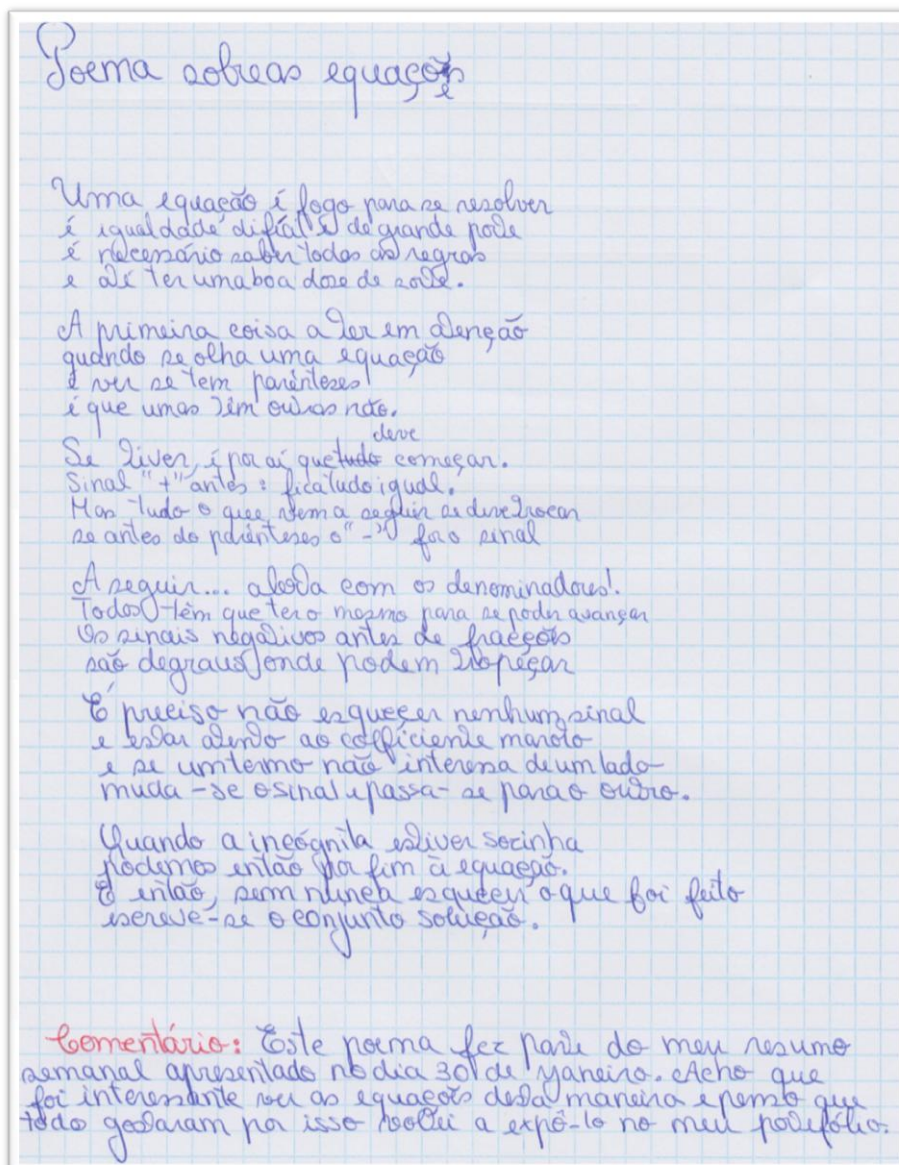 Poema sobre as equações
Uma equação é fogo para se resolver
é igualdade difícil e de grande porte
é necessário saber todas as regras
e até ter uma boa dose de sorte.
A primeira coisa a ter em atenção
quando se olha uma equação
é ver se tem parênteses
é que umas têm outras não.
Se tiver, é por aí que tudo deve começar.
Sinal "+" antes: fica tudo igual.
Mas tudo o que vem a seguir se deve trocar
se antes do parênteses o "-" for o sinal
A seguir... alerta com os denominadores!
Todos têm que ter o mesmo para se poder avançar
Os sinais negativos antes de fracções
são degraus onde podem tropeçar
É preciso não esqueçer nenhum sinal
e estar atento ao coeficiente maroto
e se um termo não interessa de um lado
muda-se o sinal e passa-se para o outro.
Quando a incógnita estiver sozinha
podemos então pôr fim à equação.
E então, sem nunca esquecer o que foi feito
escreve-se o conjunto solução.
Comentário: Este poema fez parte do meu resumo
semanal apresentado no dia 30 de Janeiro. Acho que
foi interessante ver as equações desta maneira e penso que
todo gostaram por isso voltei a expô-lo no meu portefólio.